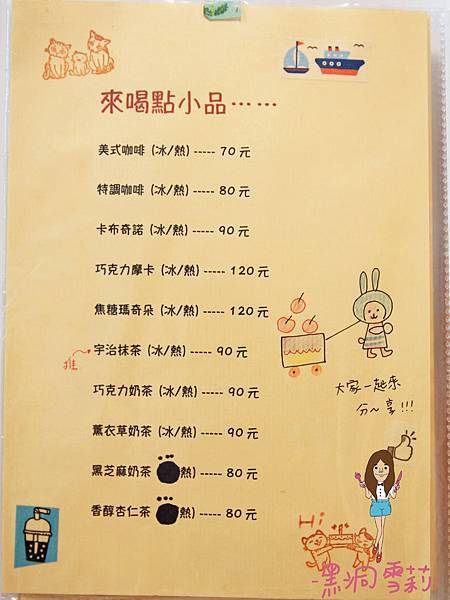 來喝點小品……
美式咖啡 (冰/熱) ----- 70 元
特調咖啡 (冰/熱) ----- 80 元
卡布奇諾 (冰/熱) ----- 90 元
巧克力摩卡 (冰/熱) ----- 120 元
焦糖瑪奇朵 (冰/熱) ----- 120 元
推
宇治抹茶 (冰/熱) ----- 90 元
巧克力奶茶 (冰/熱) ----- 90 元
薰衣草奶茶 (冰/熱) ----- 90 元
黑芝麻奶茶 熱) ----- 80 元
香醇杏仁茶 熱) ----- 80 元
大家一起來
分~享!!!
Hi
-黑洞雪莉-